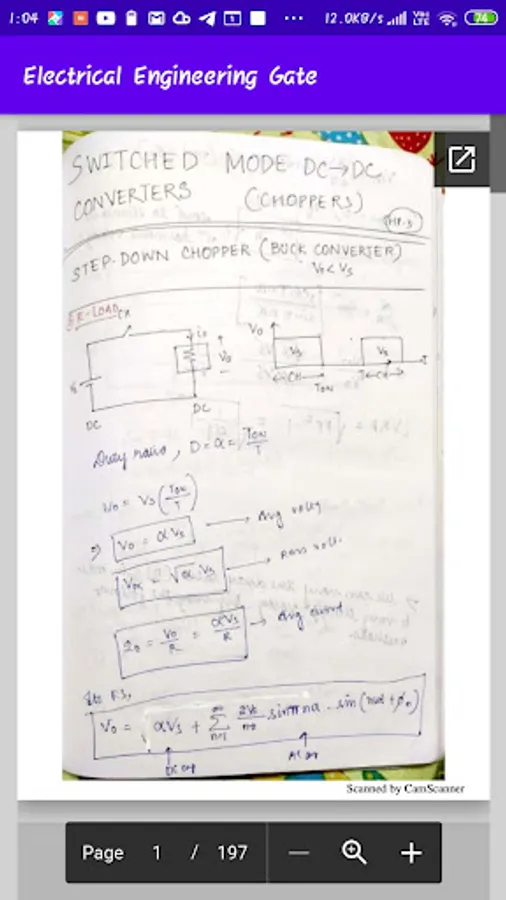 1:04
12.0KB/s
74
Electrical Engineering Gate
SWITCHED MODE DC→DC
CONVERTERS (CHOPPERS)
STEP-DOWN CHOPPER (BUCK CONVERTER)
V0 < Vs
R-LOAD
CH
i0
V0
DC
DC
V0
Vs
Vs
TON
T
Duty ratio, D = α = TON/T
V0 = Vs (TON/T)
⇒ V0 = αVs → Avg voltg
= √α Vs → Rms volt.
I0 = V0/R = αVs/R → Avg current
V0 = αVs + ∞ Σ n=1 2Vs/nπ sin πnα . sin (nωt + ϕn)
Scanned by CamScanner
Page 1 / 197